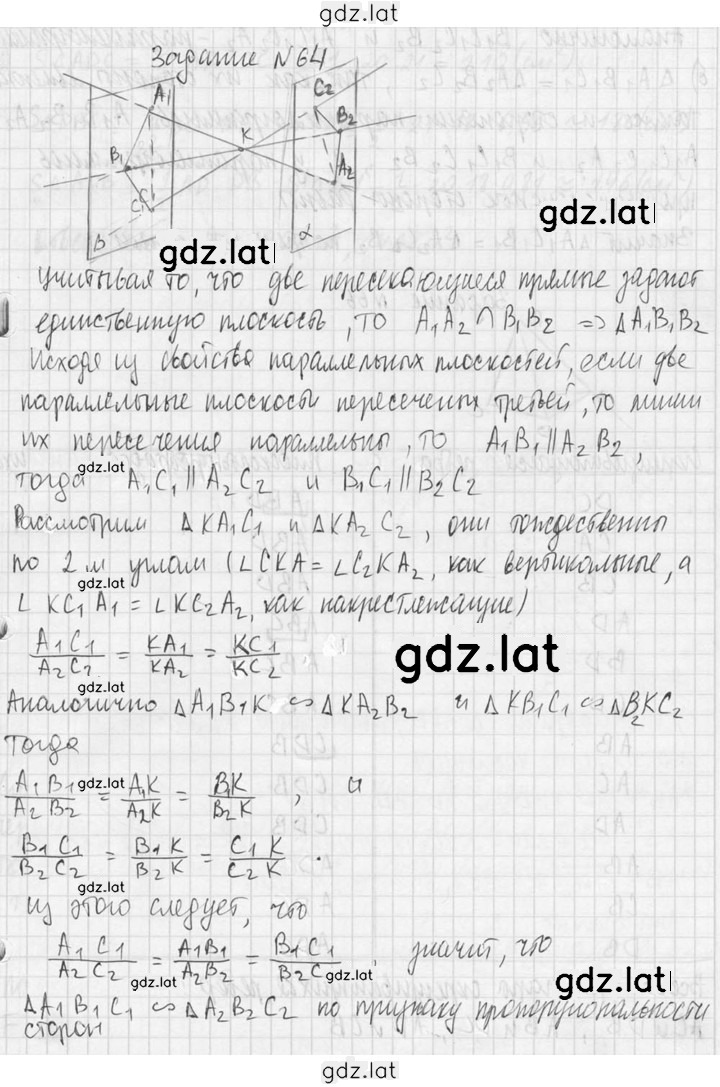 gdz.lat
Задание N64
A1
C2
B2
K
B1
A2
C1
β
α
gdz.lat
gdz.lat
Учитывая то, что две пересекающиеся прямые задают
единственную плоскость, то A1A2 ∩ B1B2 => ΔA1B1B2
Исходя из свойства параллельных плоскостей, если две
параллельные плоскосты пересечены третьей, то линии
их пересечения параллельны, то A1B1 || A2B2,
gdz.lat
тогда A1C1 || A2C2 и B1C1 || B2C2
Рассмотрим ΔKA1C1 и ΔKA2C2, они тождественны
по 2м углам (∠CKA = ∠C2KA2, как вертикальные, а
gdz.lat
∠KC1A1 = ∠KC2A2, как накрестлежащие)
A1C1/A2C2 = KA1/KA2 = KC1/KC2
gdz.lat
gdz.lat
Аналогично ΔA1B1K ∽ ΔKA2B2 и ΔKB1C1 ∽ ΔB2KC2
Тогда
A1B1/A2B2 = A1K/A2K = B1K/B2K, и
gdz.lat
B1C1/B2C2 = B1K/B2K = C1K/C2K.
gdz.lat
из этого следует, что
A1C1/A2C2 = A1B1/A2B2 = B1C1/B2C2, значит, что
gdz.lat
gdz.lat
ΔA1B1C1 ∽ ΔA2B2C2 по признаку пропорциональности
сторон
gdz.lat